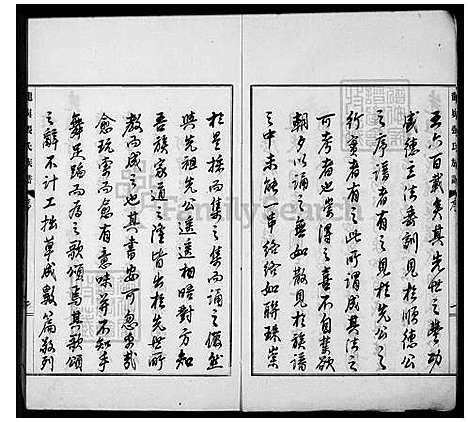 五六百載矣其先世之豐功
盛德立法垂訓見於順德公
之序譜者有之見於先公之
行實者有之此所謂成其法之
可考者也崇得之喜不自禁欲
朝夕以誦之無如散見於族譜
之中未能一串絡絡如聯珠崇
於是採而集之集而誦之儼然
與先祖先公遙遙相晤對方知
吾族家道之隆皆出於先世所
教而成之也其書安可忽乎哉
愈玩索而愈有意味并不知手
舞足蹈而為之歌頌焉其歌頌
之辭不計工拙草成數篇敬列
FamilySearch